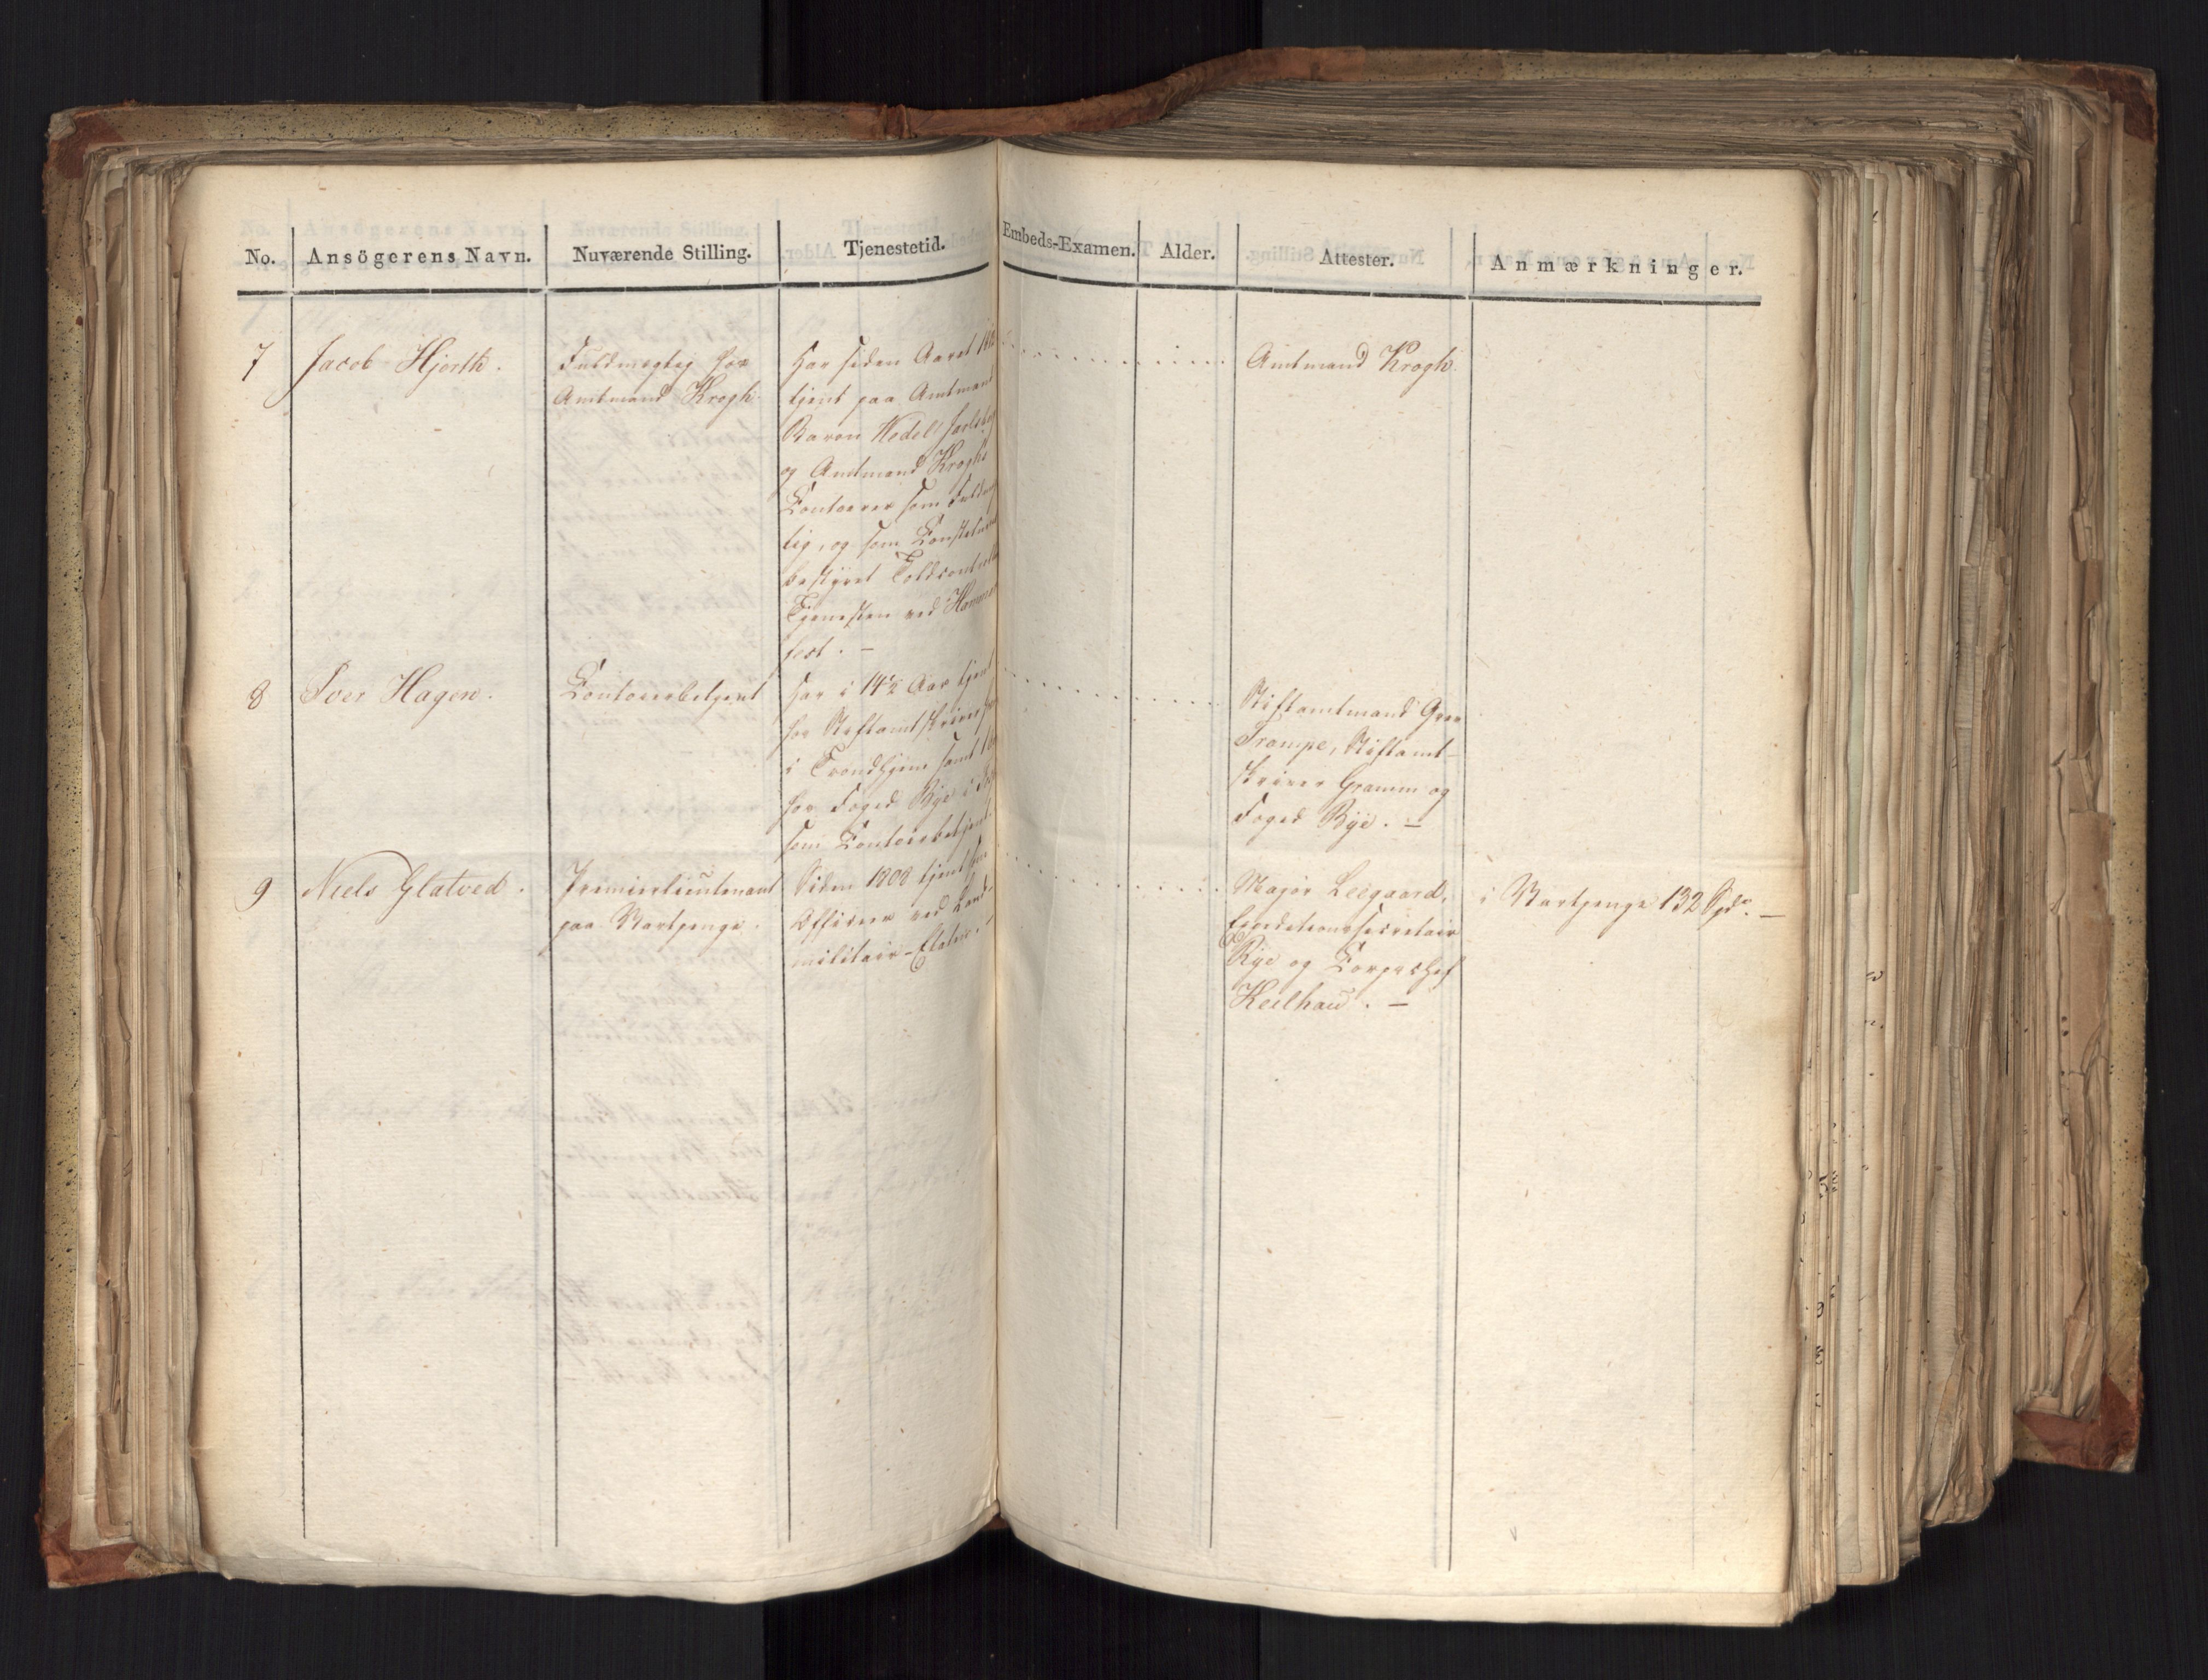 No. Ansögerens Navn. Nuværende Stilling. Tjenestetid. Embeds-Examen. Alder. Attester. Anmærkninger.
7 Jacob Hjorth. Fuldmegtig hos
Amtmand Krogh.
Har siden Aaret
tjent paa Amtmand
Baron Wedel Jarlsberg
og Amtmand Kroghs
Contoirer som Fuldmeg
tig, og som Constitueret
bestyret Toldcontrol
Tjenesten ved Hammer
fest. –
Amtmand Krogh.
8 Iver Hagen. Contoirbetjent
har i 14½ Aar tjent
hos Stiftamtskriveren
i Trondhjem samt
hos Foged Bye i
som Contoirbetjent.
Stiftamtmand Grev
Trampe, Stiftamt-
skriver Gramm og
Foged Bye. –
9 Niels Glatved. Premierlieutenant
paa Vartpenge.
Siden 1808 tjent som
Officeer ved Land-
militair-Etaten. –
Major Leegaard,
Expeditionssecretair
Rye og Corpschef
Keilhau. –
i Vartpenge 132 Spd. –